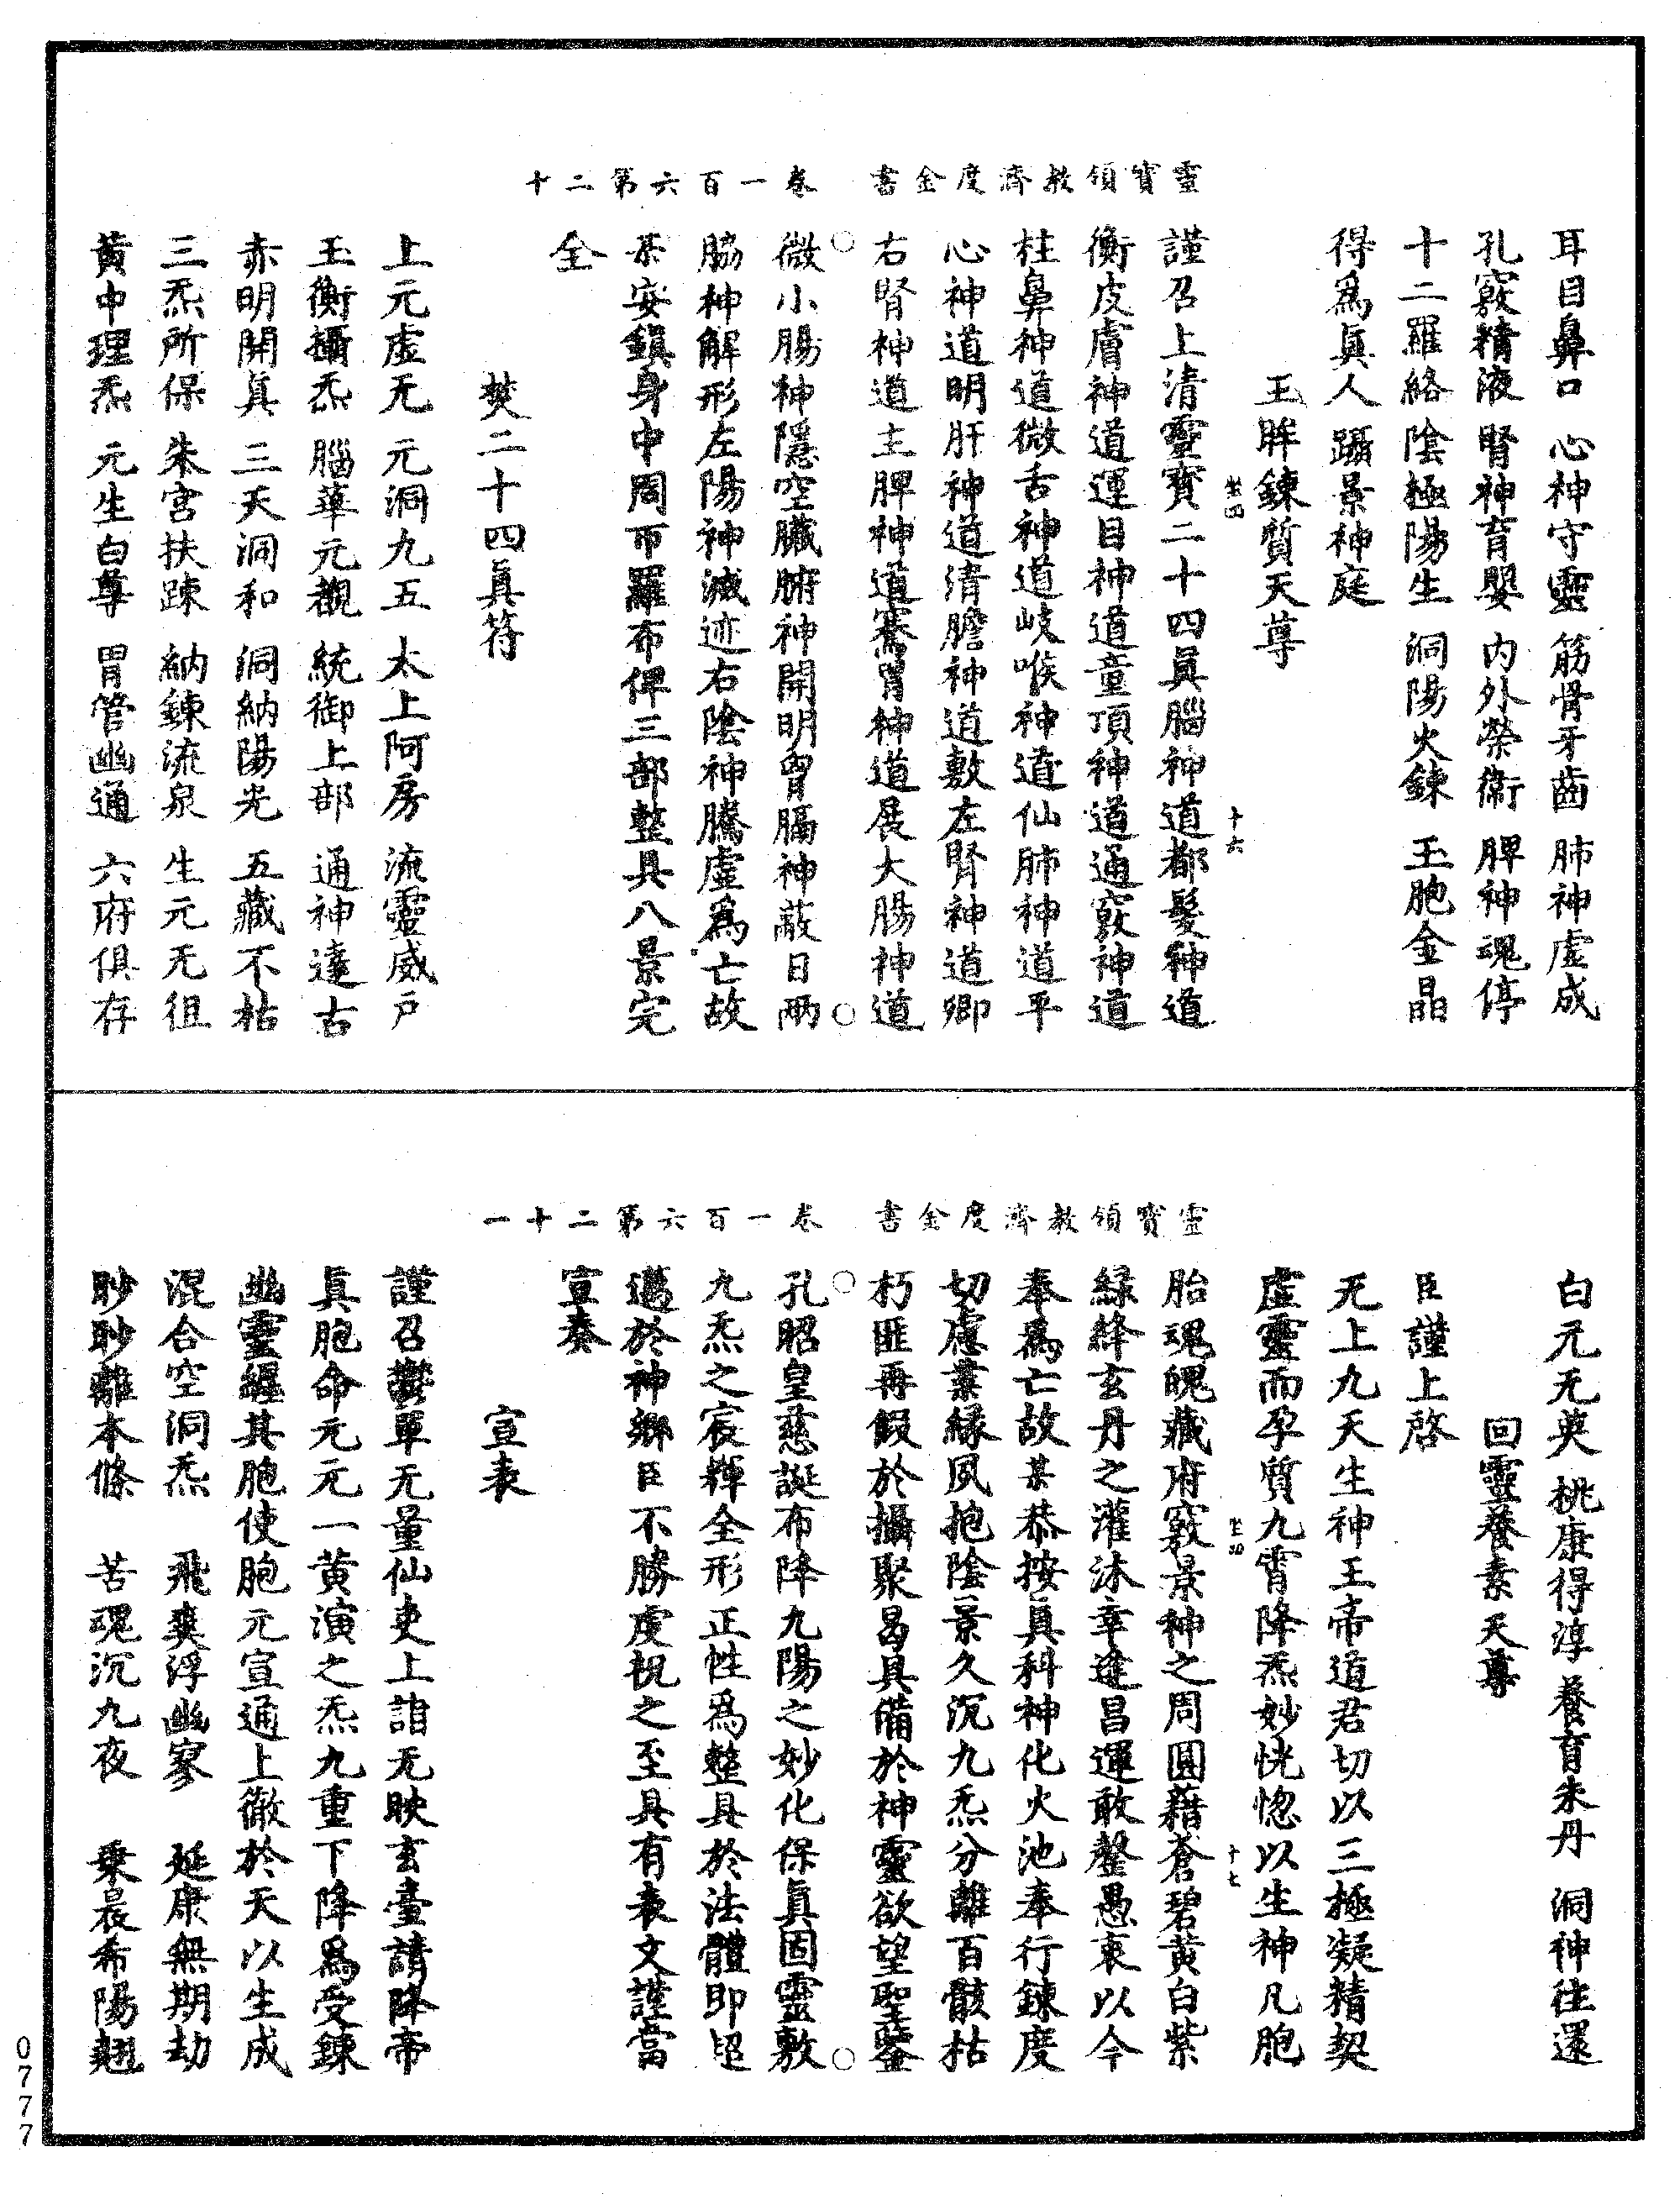 靈寶領教濟度金書 卷一百六第二十
耳目鼻口 心神守靈 筋骨牙齒 肺神虛成
孔竅精液 腎神育嬰 內外榮衞 脾神魂停
十二羅絡 陰極陽生 洞陽火鍊 玉胞金晶
得爲眞人 躡景神庭
玉眸鍊質天尊
十六
謹召上清靈寶二十四眞腦神道都髮神道
衡皮膚神道運目神道童頂神道通竅神道
柱鼻神道微舌神道岐喉神道仙肺神道平
心神道明肝神道清膽神道敷左腎神道卿
右腎神道主脾神道騫胃神道展大腸神道
微小腸神隱空臟腑神開明胷膈神蔽日兩
脇神解形左陽神滅迹右陰神騰虛爲亡故
某安鎭身中周帀羅布俾三部整具八景完
全
焚二十四眞符
上元虛无 元洞九五 太上阿房 流靈威戶
玉衡攝炁 腦華元觀 統御上部 通神達古
赤明開眞 三天洞和 洞納陽光 五藏不枯
三炁所保 朱宮扶踈 納鍊流泉 生元无徂
黃中理炁 元生白尊 胃管幽通 六府俱存
靈寶領教濟度金書 卷一百六第二十一
白元无英 桃康得淳 養育朱丹 洞神往還
回靈養素天尊
臣謹上啓
无上九天生神王帝道君切以三極凝精契
虛靈而孕質九霄降炁妙恍惚以生神凡胞
十七
胎魂魄藏府竅景神之周圓藉蒼碧黃白紫
綠絳玄丹之灌沐幸逢昌運敢罄愚衷以今
奉爲亡故某恭按眞科神化火池奉行鍊度
切慮業緣夙抱陰景久沉九炁分離百骸枯
朽匪再假於攝聚曷具備於神靈欲望聖鑒
孔昭皇慈誕布降九陽之妙化保眞固靈敷
九炁之宸輝全形正性爲整具於法體即超
邁於神鄉臣不勝虔祝之至具有表文謹當
宣奏
宣表
謹召鬱單无量仙吏上詣无映玄臺請降帝
眞胞命元元一黃演之炁九重下降爲受鍊
幽靈纏其胞使胞元宣通上徹於天以生成
混合空洞炁 飛爽浮幽寥 延康無期劫
眇眇離本條 苦魂沉九夜 乗晨希陽翹
0777